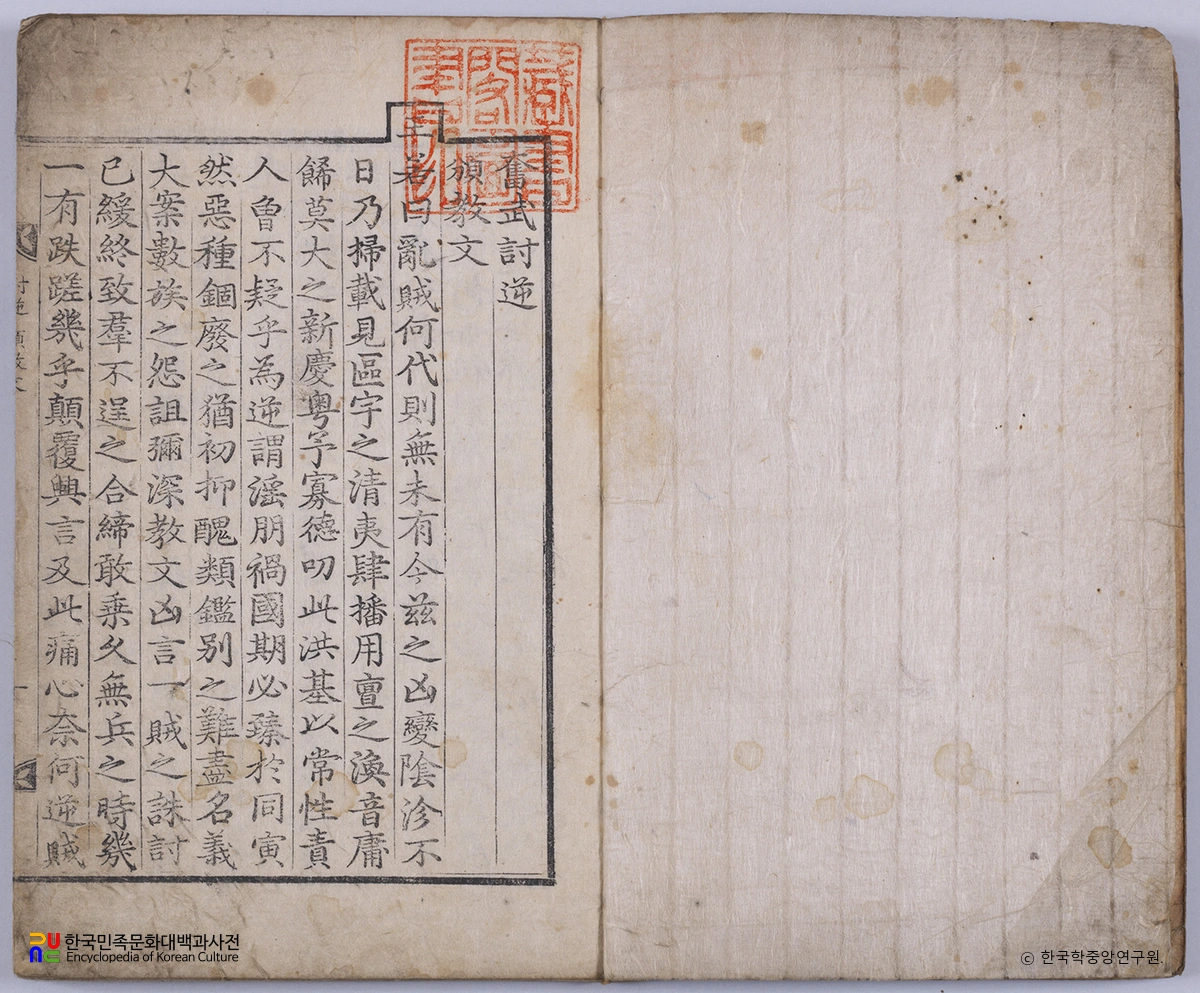 奮武討逆
頒教文
王若曰亂賊何代則無未有今兹之凶變陰沴不
日乃掃載見區宇之清夷肆播用亶之渙音庸
餙莫大之新慶粤予寡德叨此洪基以常性責
人曾不疑乎為逆謂滛朋禍國期必臻於同寅
然惡種錮廢之猶初抑醜類鑑别之難盡名義
大案數族之怨詛彌深教文凶言一賊之誅討
已緩終致羣不逞之合締敢乗久無兵之時幾
一有跌蹉幾乎顛覆興言及此痛心奈何逆賊
한국민족문화대백과사전
Encyclopedia of Korean Culture
© 한국학중앙연구원.